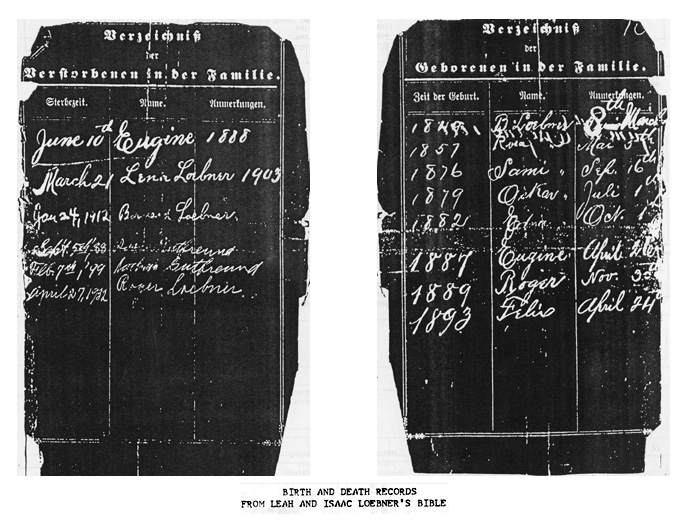 Verzeichniß
der
Verstorbenen in der Familie.
Sterbezeit. Name. Anmerkungen.
June 10th Eugine 1888
March 21 Lena Loebner 1903
Jan 24, 1912 Bernard Loebner.
Sept. Gutfreund
Feb. 7th, Gutfreund
April 27, 1932 Roger Loebner.
Verzeichniß
der
Geborenen in der Familie.
Zeit der Geburt. Name. Anmerkungen.
B. Loebner 8th March
1857 Rosa Mai
1876 Sami " Sep. 16th
1879 Oskar " Juli
1882 Edna Oct.
1887 Eugine April
1889 Roger Nov. 3
1893 Felix April 24th
BIRTH AND DEATH RECORDS
FROM LEAH AND ISAAC LOEBNER'S BIBLE